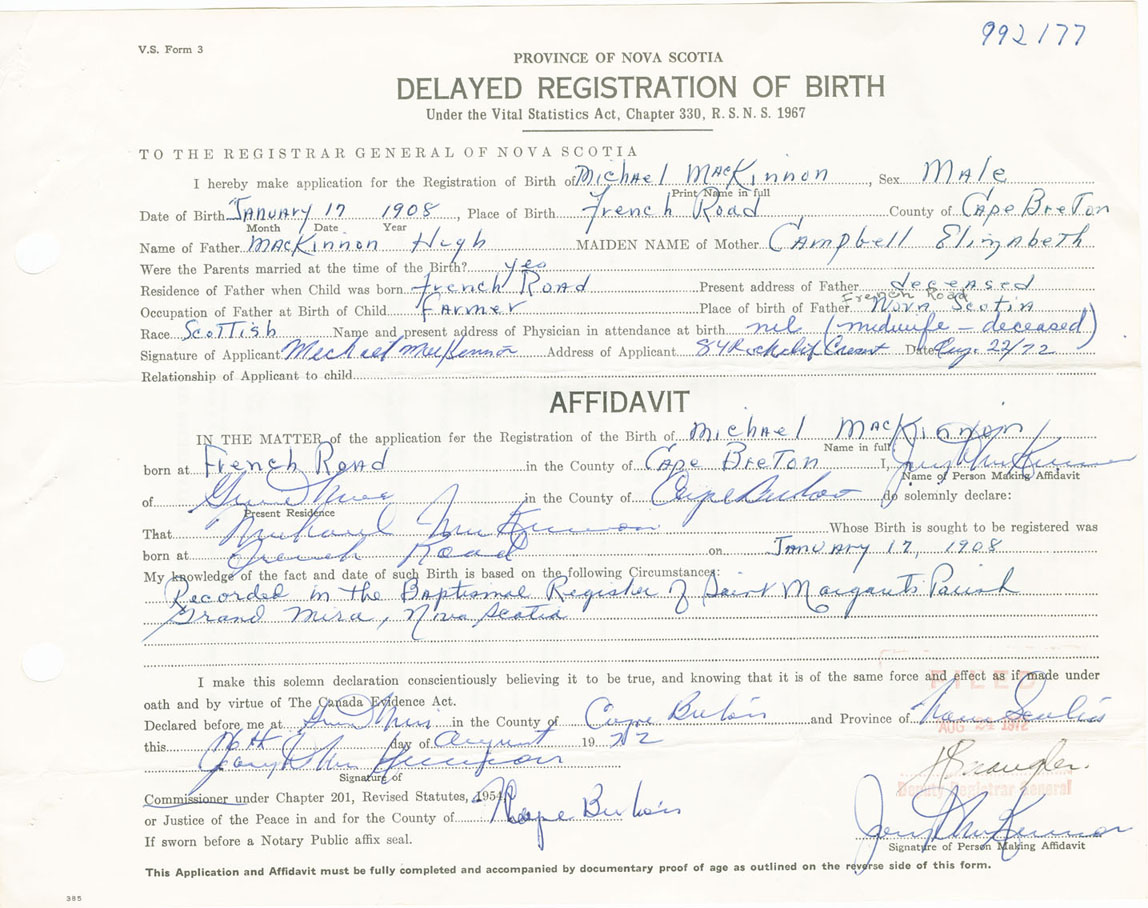 992177
V.S. Form 3
PROVINCE OF NOVA SCOTIA
DELAYED REGISTRATION OF BIRTH
Under the Vital Statistics Act, Chapter 330, R. S. N. S. 1967
TO THE REGISTRAR GENERAL OF NOVA SCOTIA
I hereby make application for the Registration of Birth of Michael MacKinnon, Sex Male
Print Name in full
Date of Birth January 17 1908, Place of Birth French Road County of Cape Breton
Month Date Year
Name of Father MacKinnon Hugh MAIDEN NAME of Mother Campbell Elizabeth
Were the Parents married at the time of the Birth? yes
Residence of Father when Child was born French Road Present address of Father deceased
French Road
Occupation of Father at Birth of Child Farmer Place of birth of Father Nova Scotia
Race Scottish Name and present address of Physician in attendance at birth nil (midwife - deceased)
Signature of Applicant Michael MacKinnon Address of Applicant 84 Date Aug. 22/72
Relationship of Applicant to child
AFFIDAVIT
IN THE MATTER of the application for the Registration of the Birth of Michael MacKinnon
Name in full
born at French Road in the County of Cape Breton I,
Name of Person Making Affidavit
of Grand Mira in the County of Cape Breton do solemnly declare:
Present Residence
That Michael MacKinnon Whose Birth is sought to be registered was
born at French Road on January 17, 1908
My knowledge of the fact and date of such Birth is based on the following Circumstances:
Recorded in the Baptismal Register of Saint Margaret's Parish
Grand Mira, Nova Scotia
I make this solemn declaration conscientiously believing it to be true, and knowing that it is of the same force and effect as if made under
FILED
oath and by virtue of The Canada Evidence Act.
Declared before me at Grand Mira in the County of Cape Breton and Province of Nova Scotia
this day of August 1972
Signature of
Deputy Registrar General
Commissioner under Chapter 201, Revised Statutes, 1954,
or Justice of the Peace in and for the County of Cape Breton
If sworn before a Notary Public affix seal.
Signature of Person Making Affidavit
This Application and Affidavit must be fully completed and accompanied by documentary proof of age as outlined on the reverse side of this form.
385